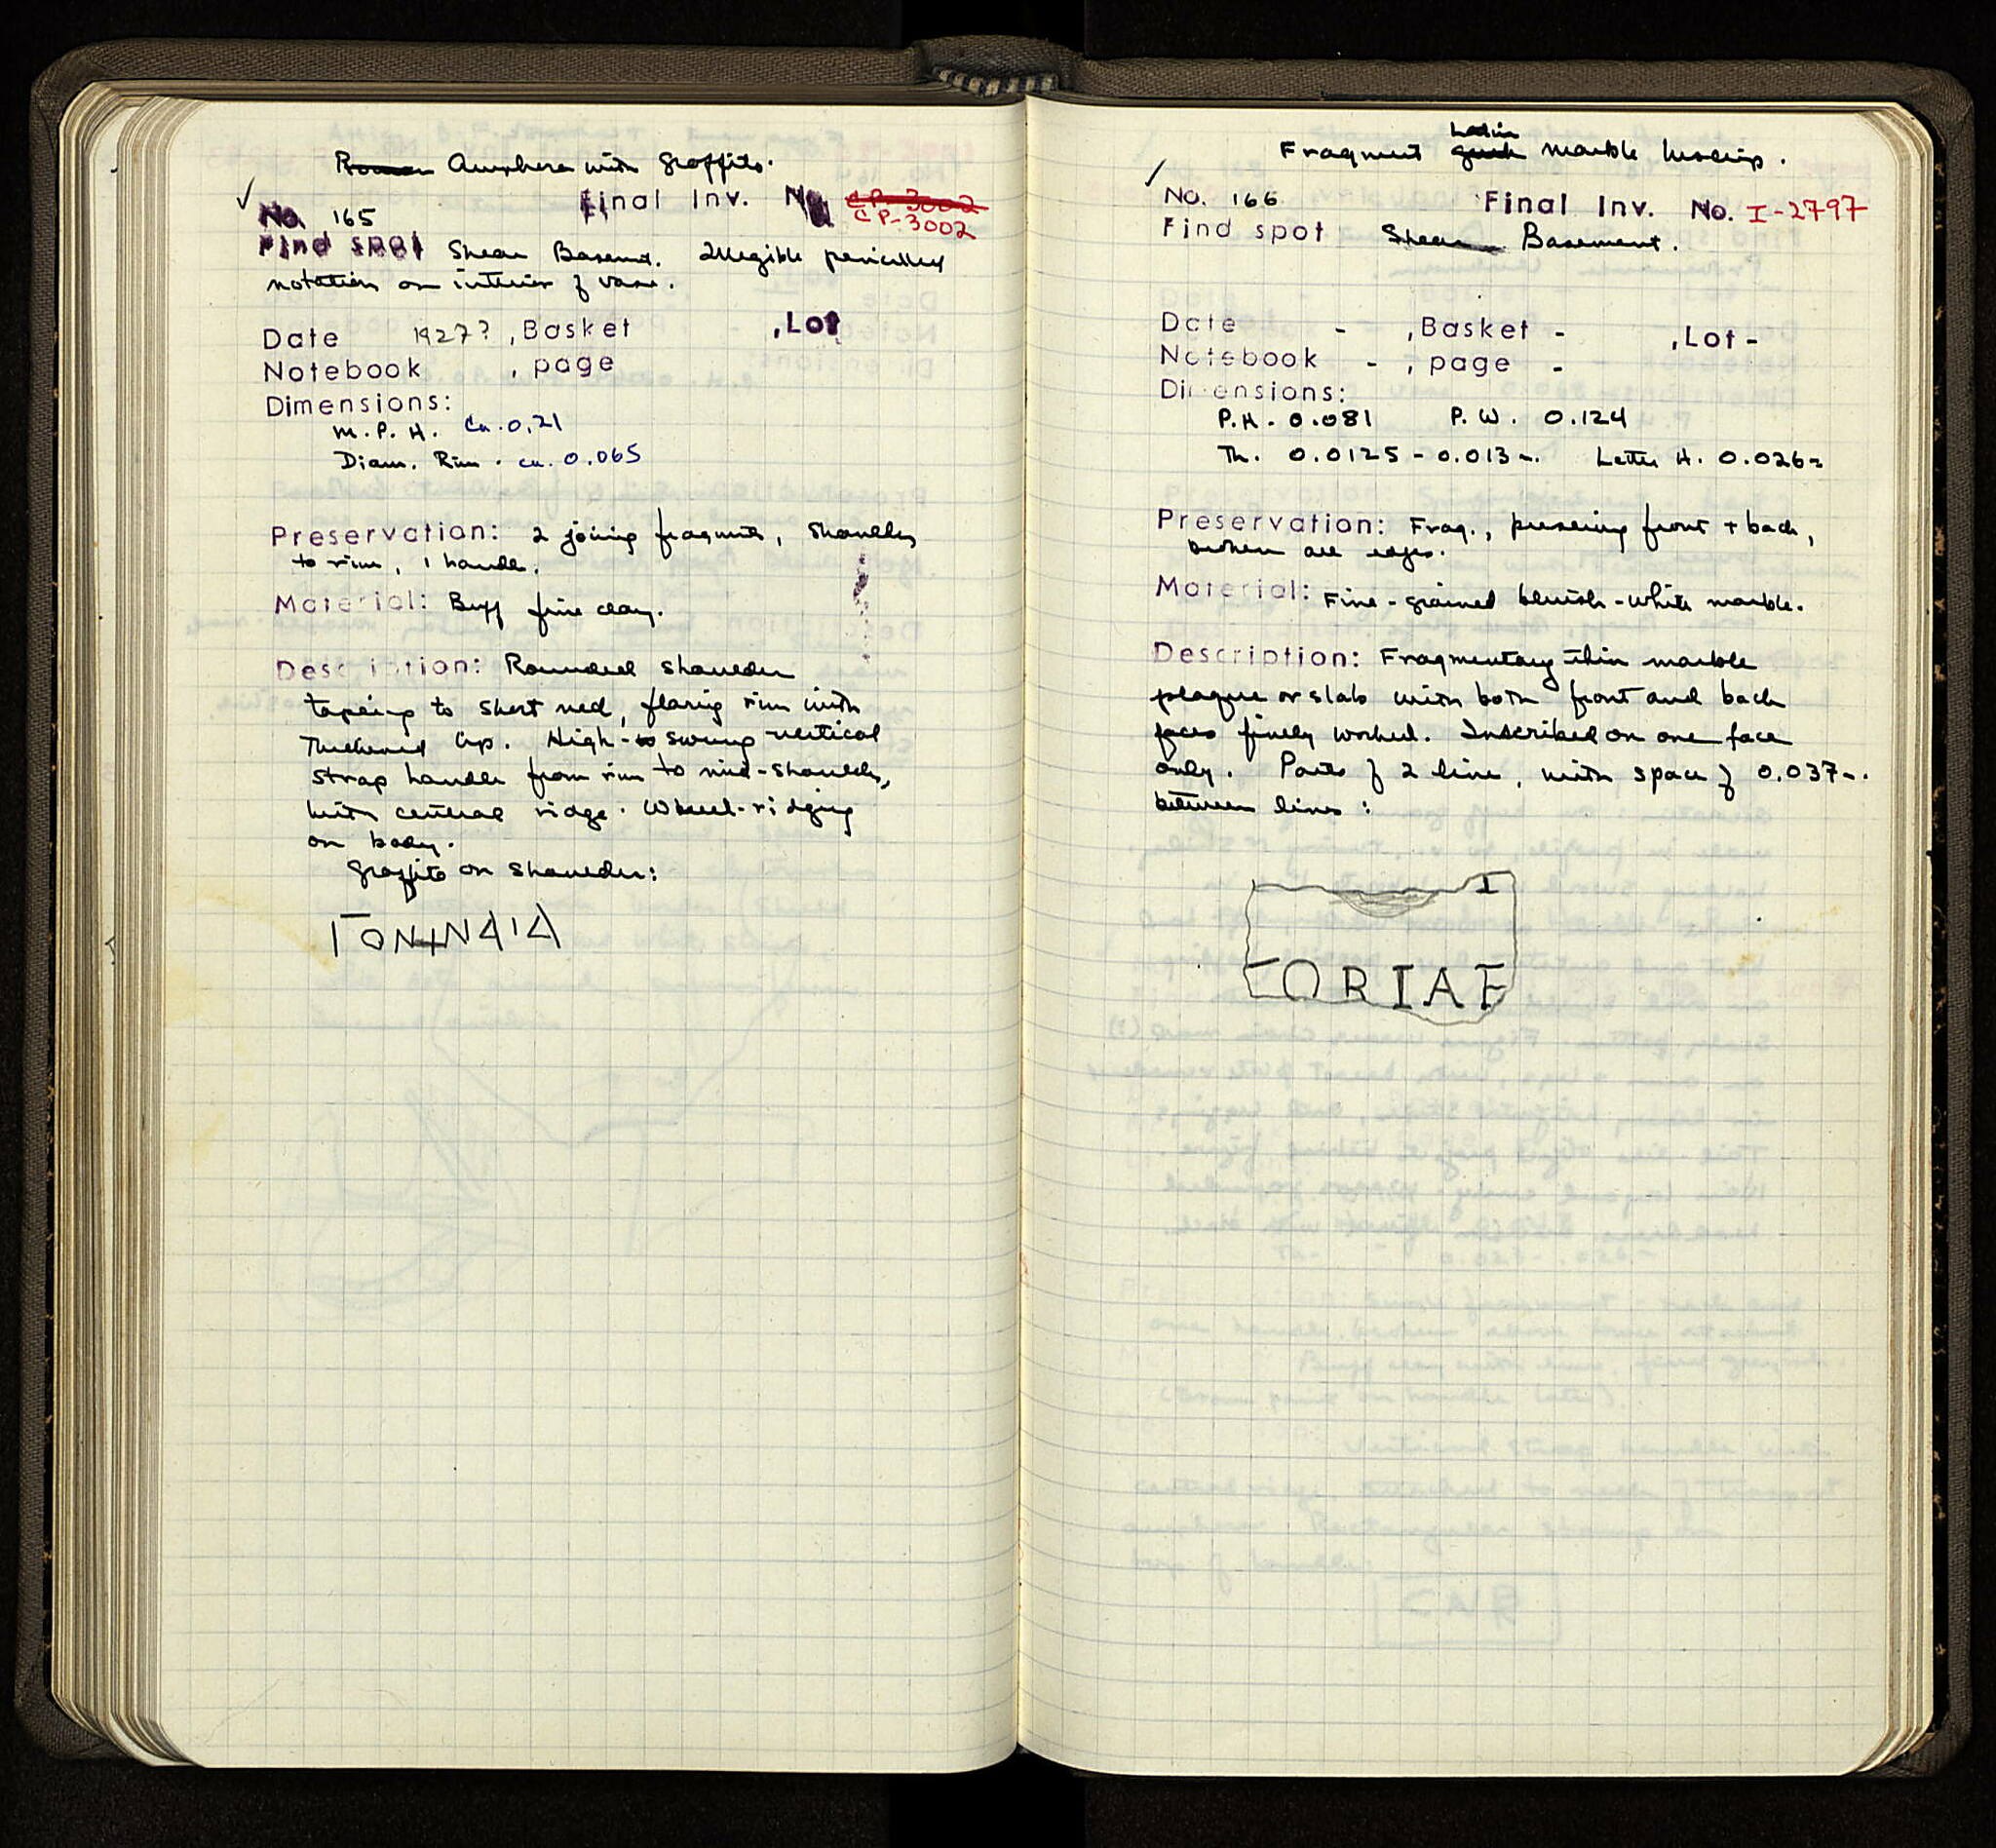 Roman Amphora with Graffito.
No. 165 Final Inv. No. CP-3002
CP-3002
Find spot Shear Basemt. Illegible pencilled
notation on interior of vase.
Date 1927? , Basket , Lot
Notebook , page
Dimensions:
M. P. H. ca. 0.21
Diam. Rim . ca. 0.065
Preservation: 2 joining fragments, shoulder
to rim, 1 handle.
Material: Buff fine clay.
Description: Rounded shoulder
tapering to short neck, flaring rim with
thickened lip. High-swung vertical
strap handle from rim to mid-shoulder,
with central ridge. Wheel-ridging
on body.
Graffito on shoulder:
Latin
Fragment Greek marble Inscrip.
No. 166 Final Inv. No. I-2797
Find spot Shear Basement.
Date - , Basket - , Lot -
Notebook - , page -
Dimensions:
P.H. 0.081 P.W. 0.124
Th. 0.0125 - 0.013 m. Letter H. 0.026m
Preservation: Frag., preserving front + back,
broken all edges.
Material: Fine-grained bluish-white marble.
Description: Fragmentary thin marble
plaque or slab with both front and back
faces finely worked. Inscribed on one face
only. Parts of 2 line, with space of 0.037m.
between lines:
I
TORIAE